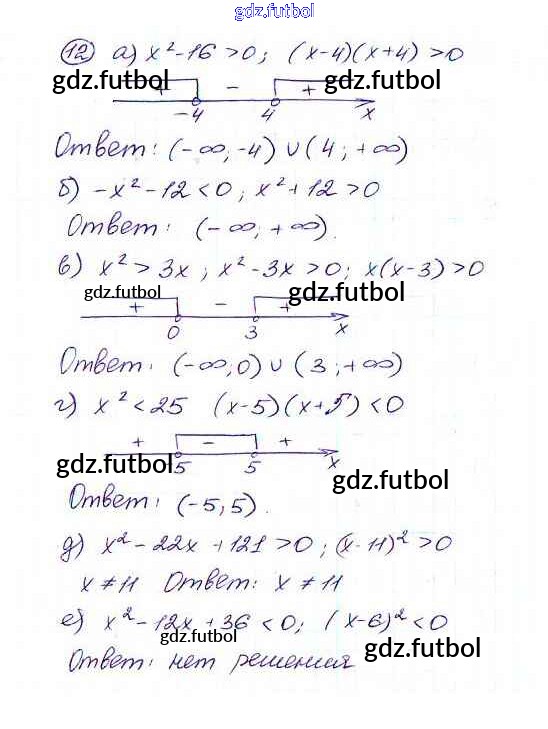 gdz.futbol
12 а) x²-16>0; (x-4)(x+4)>0
gdz.futbol gdz.futbol
+ - +
-4 4 x
Ответ: (-∞;-4) ∪ (4;+∞)
б) -x²-12<0; x²+12>0
Ответ: (-∞;+∞).
в) x²>3x; x²-3x>0; x(x-3)>0
gdz.futbol gdz.futbol
+ - +
0 3 x
Ответ: (-∞;0) ∪ (3;+∞)
г) x²<25 (x-5)(x+5)<0
+ - +
gdz.futbol
5 5 x
gdz.futbol
Ответ: (-5;5).
д) x²-22x+121>0; (x-11)²>0
x≠11 Ответ: x≠11
е) x²-12x+36<0; (x-6)²<0
gdz.futbol gdz.futbol
Ответ: нет решения